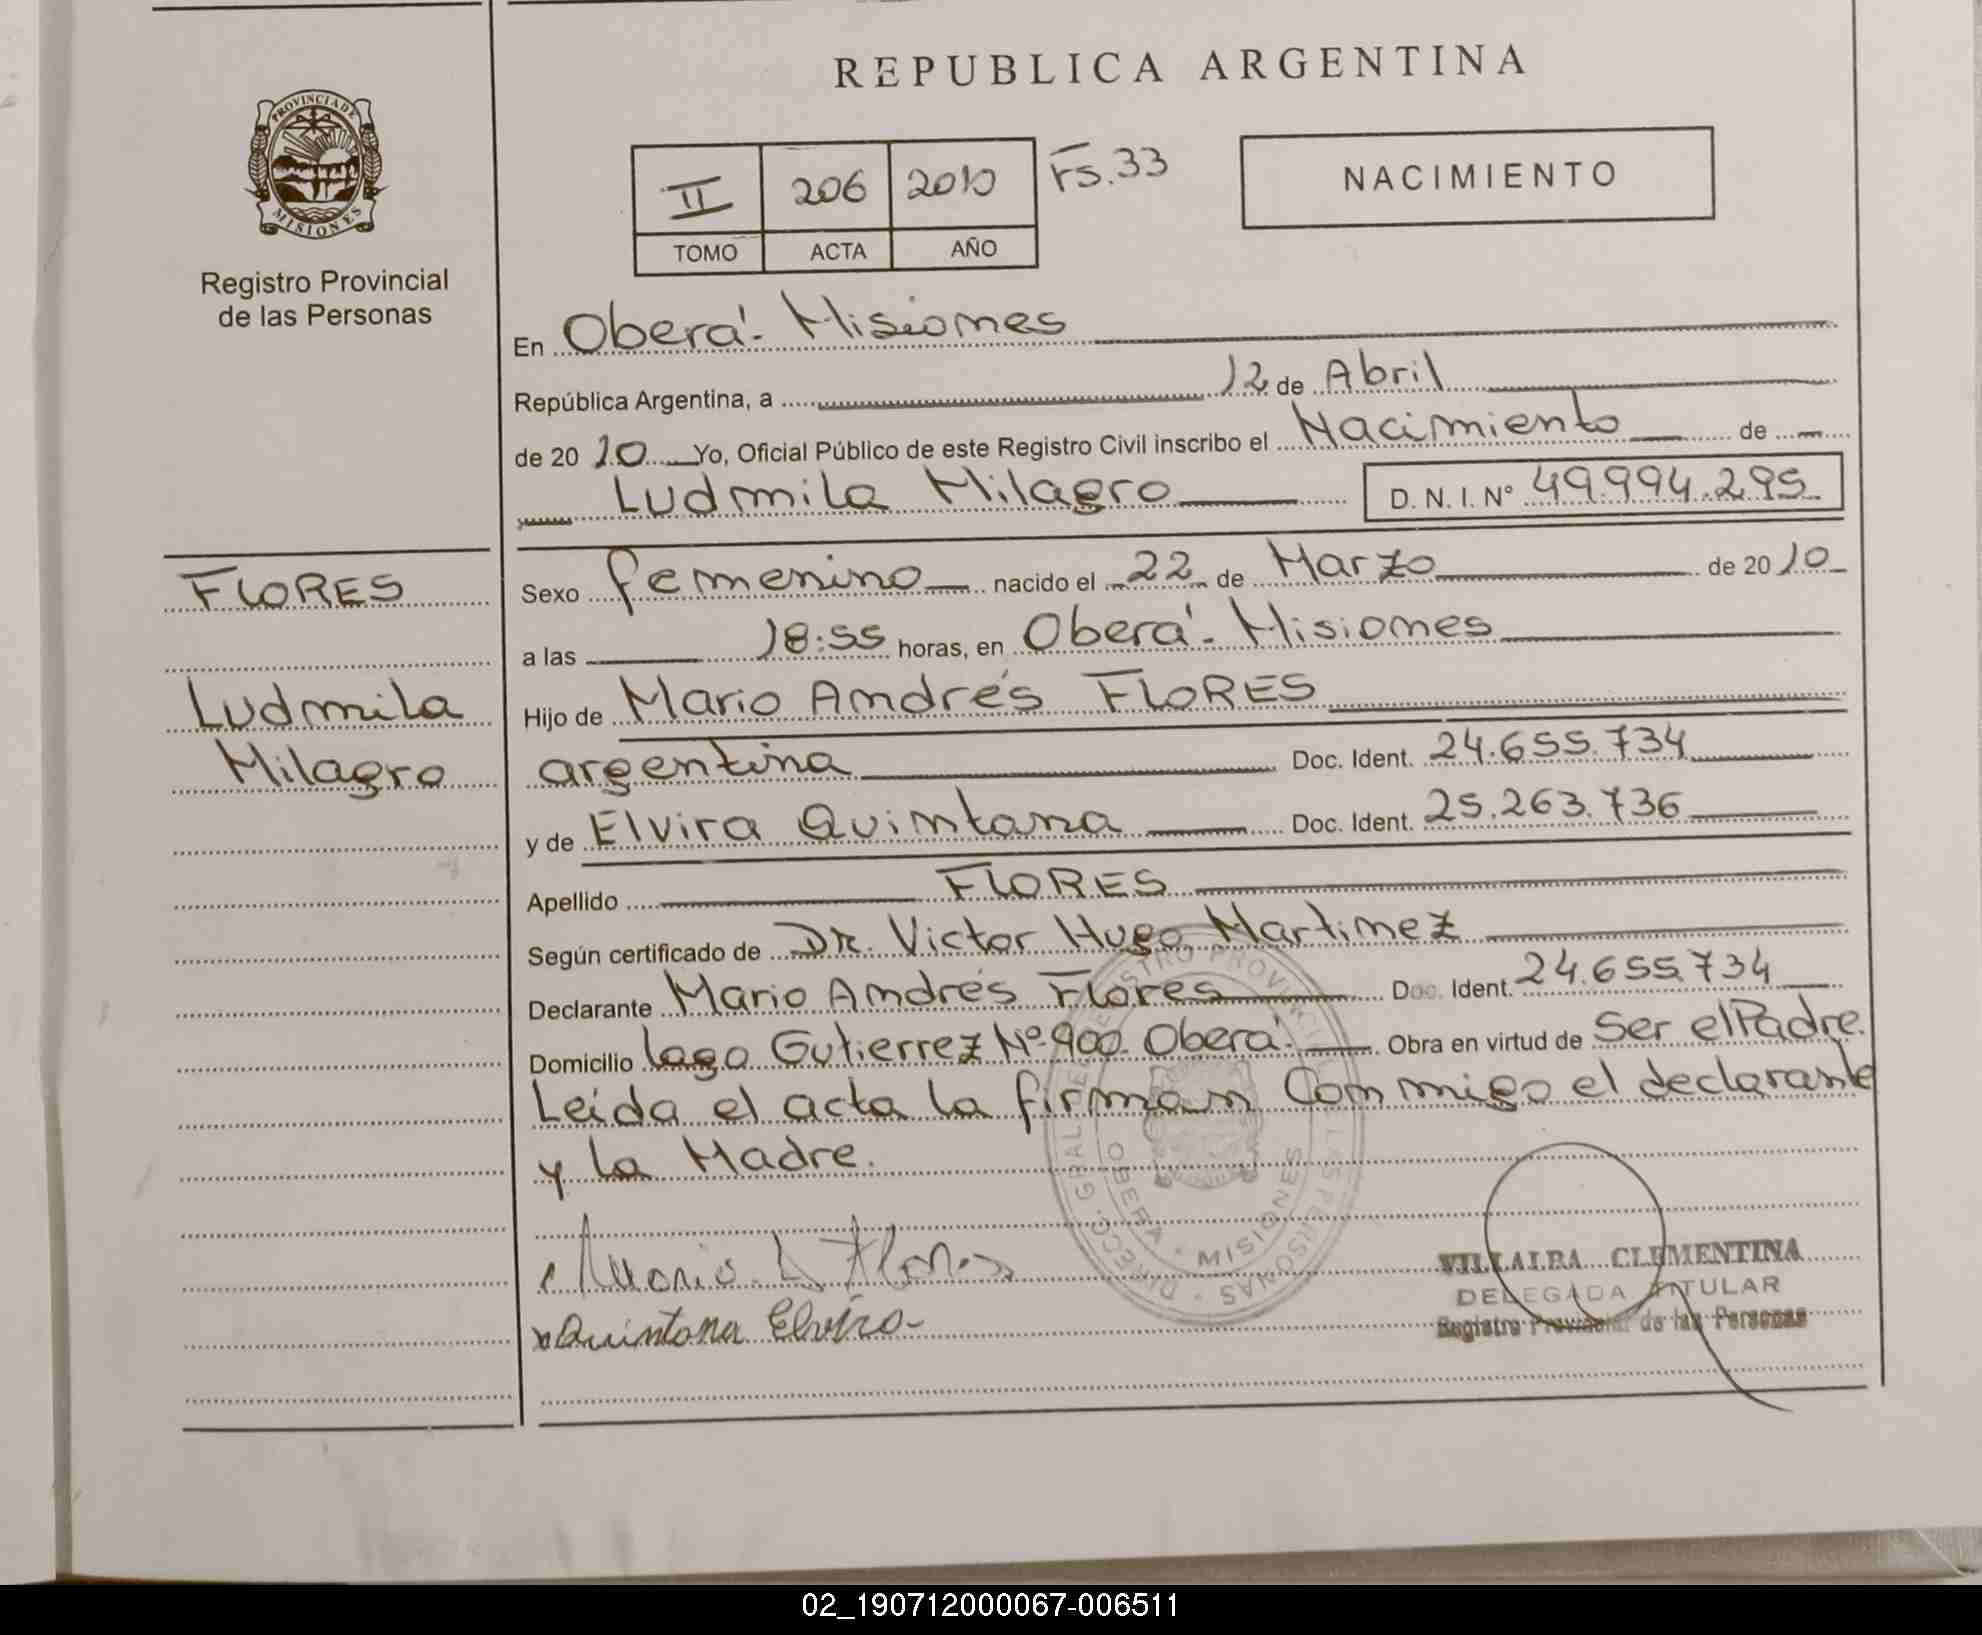 REPUBLICA ARGENTINA
PROVINCIA DE
MISIONES
Registro Provincial
de las Personas
II 206 2010 Fs.33
TOMO ACTA AÑO
NACIMIENTO
En Oberá - Misiones
República Argentina, a 12 de Abril
de 20 10 Yo, Oficial Público de este Registro Civil inscribo el Nacimiento de
Ludmila Milagro D. N. I. N° 49.994.295
FLORES
Ludmila
Milagro
Sexo femenino nacido el 22 de Marzo de 20 10
a las 18:55 horas, en Oberá - Misiones
Hijo de Mario Andrés FLORES
argentina Doc. Ident. 24.655.734
y de Elvira Quintana Doc. Ident. 25.263.736
Apellido FLORES
Según certificado de Dr. Victor Hugo Martinez
Declarante Mario Andrés Flores Doc. Ident. 24.655.734
Domicilio Lago Gutierrez Nº 900. Oberá. Obra en virtud de Ser el Padre.
Leída el acta la firman Conmigo el declarante
y la Madre.
DIRECC. GRAL. DE REGISTRO PROVINCIAL DE LAS PERSONAS
OBERA - MISIONES
Quintana Elvira
VILLALBA CLEMENTINA
DELEGADA TITULAR
Registro Provincial de las Personas
02_190712000067-006511